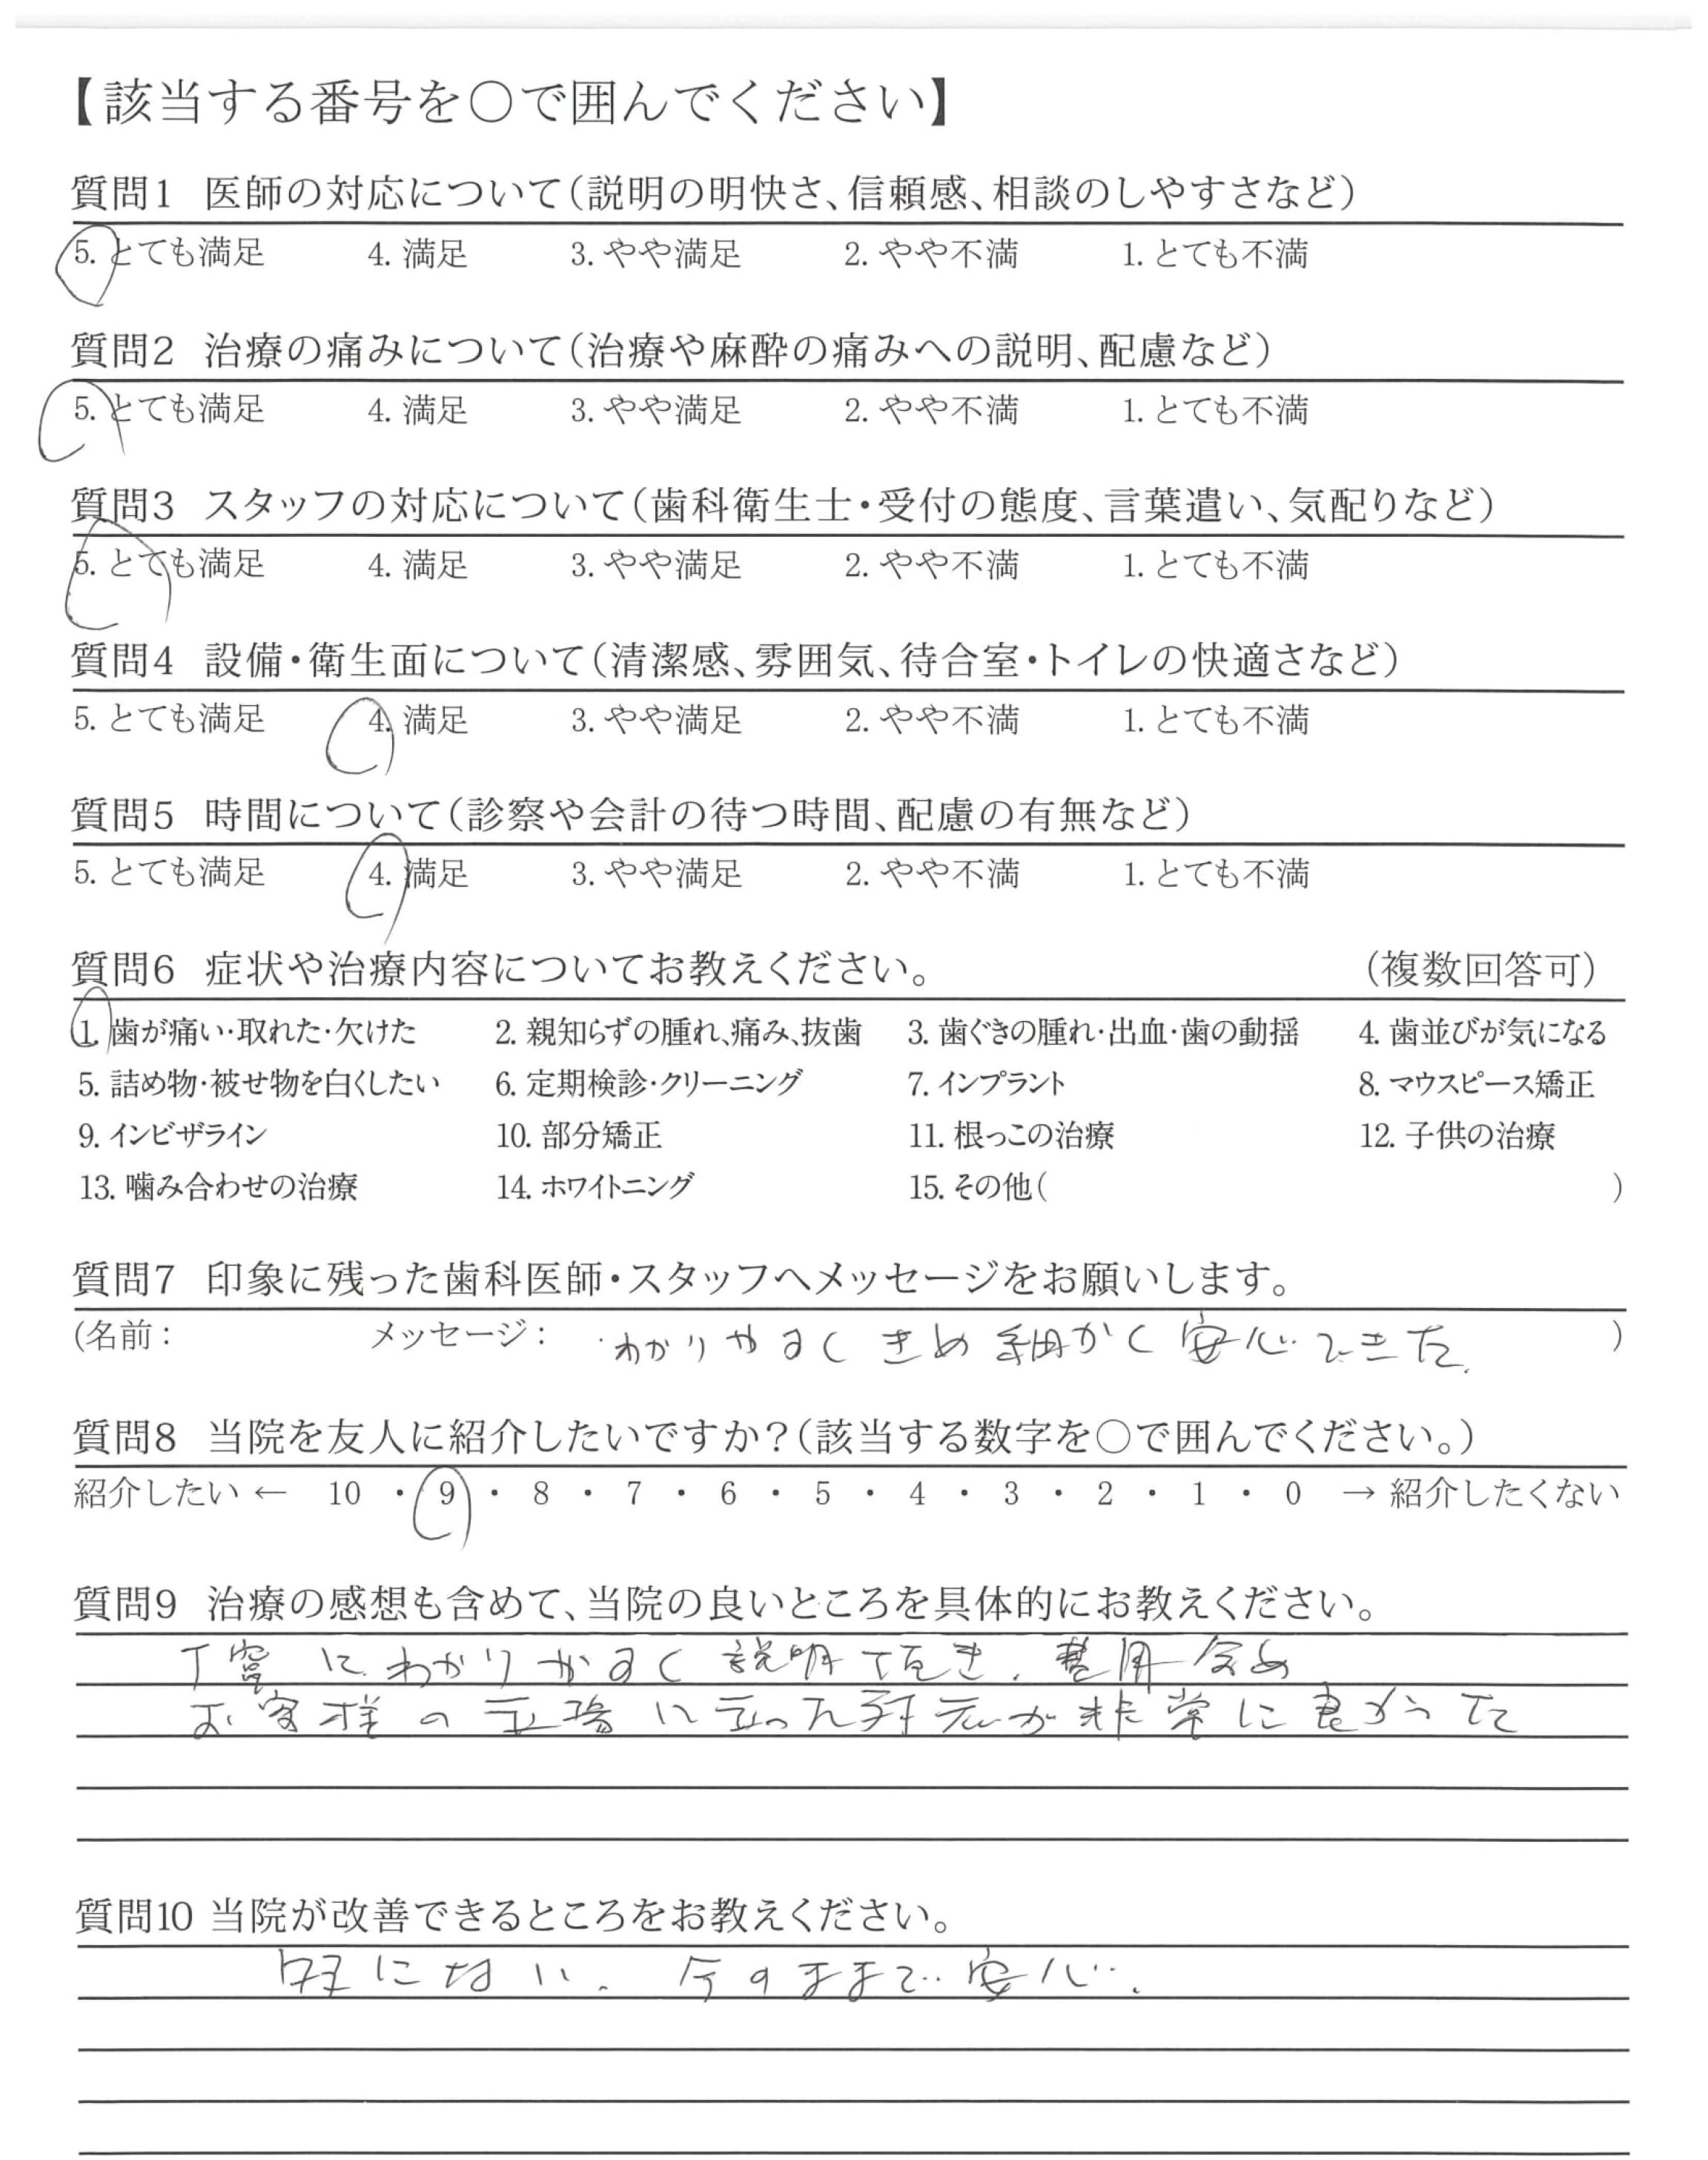 【該当する番号を○で囲んでください】
質問1 医師の対応について(説明の明快さ、信頼感、相談のしやすさなど)
5. とても満足 4. 満足 3. やや満足 2. やや不満 1. とても不満
質問2 治療の痛みについて(治療や麻酔の痛みへの説明、配慮など)
5. とても満足 4. 満足 3. やや満足 2. やや不満 1. とても不満
質問3 スタッフの対応について(歯科衛生士・受付の態度、言葉遣い、気配りなど)
5. とても満足 4. 満足 3. やや満足 2. やや不満 1. とても不満
質問4 設備・衛生面について(清潔感、雰囲気、待合室・トイレの快適さなど)
5. とても満足 4. 満足 3. やや満足 2. やや不満 1. とても不満
質問5 時間について(診察や会計の待つ時間、配慮の有無など)
5. とても満足 4. 満足 3. やや満足 2. やや不満 1. とても不満
質問6 症状や治療内容についてお教えください。 (複数回答可)
1. 歯が痛い・取れた・欠けた 2. 親知らずの腫れ、痛み、抜歯 3. 歯ぐきの腫れ・出血・歯の動揺 4. 歯並びが気になる
5. 詰め物・被せ物を白くしたい 6. 定期検診・クリーニング 7. インプラント 8. マウスピース矯正
9. インビザライン 10. 部分矯正 11. 根っこの治療 12. 子供の治療
13. 噛み合わせの治療 14. ホワイトニング 15. その他( )
質問7 印象に残った歯科医師・スタッフへメッセージをお願いします。
(名前: メッセージ: わかりやすく きめ細かく 安心できた。 )
質問8 当院を友人に紹介したいですか?(該当する数字を○で囲んでください。)
紹介したい ← 10 ・ 9 ・ 8 ・ 7 ・ 6 ・ 5 ・ 4 ・ 3 ・ 2 ・ 1 ・ 0 → 紹介したくない
質問9 治療の感想も含めて、当院の良いところを具体的にお教えください。
丁寧にわかりやすく説明頂き、費用含め
お客様の立場に立った対応が非常に良かった
質問10 当院が改善できるところをお教えください。
特にない。今のままで安心。